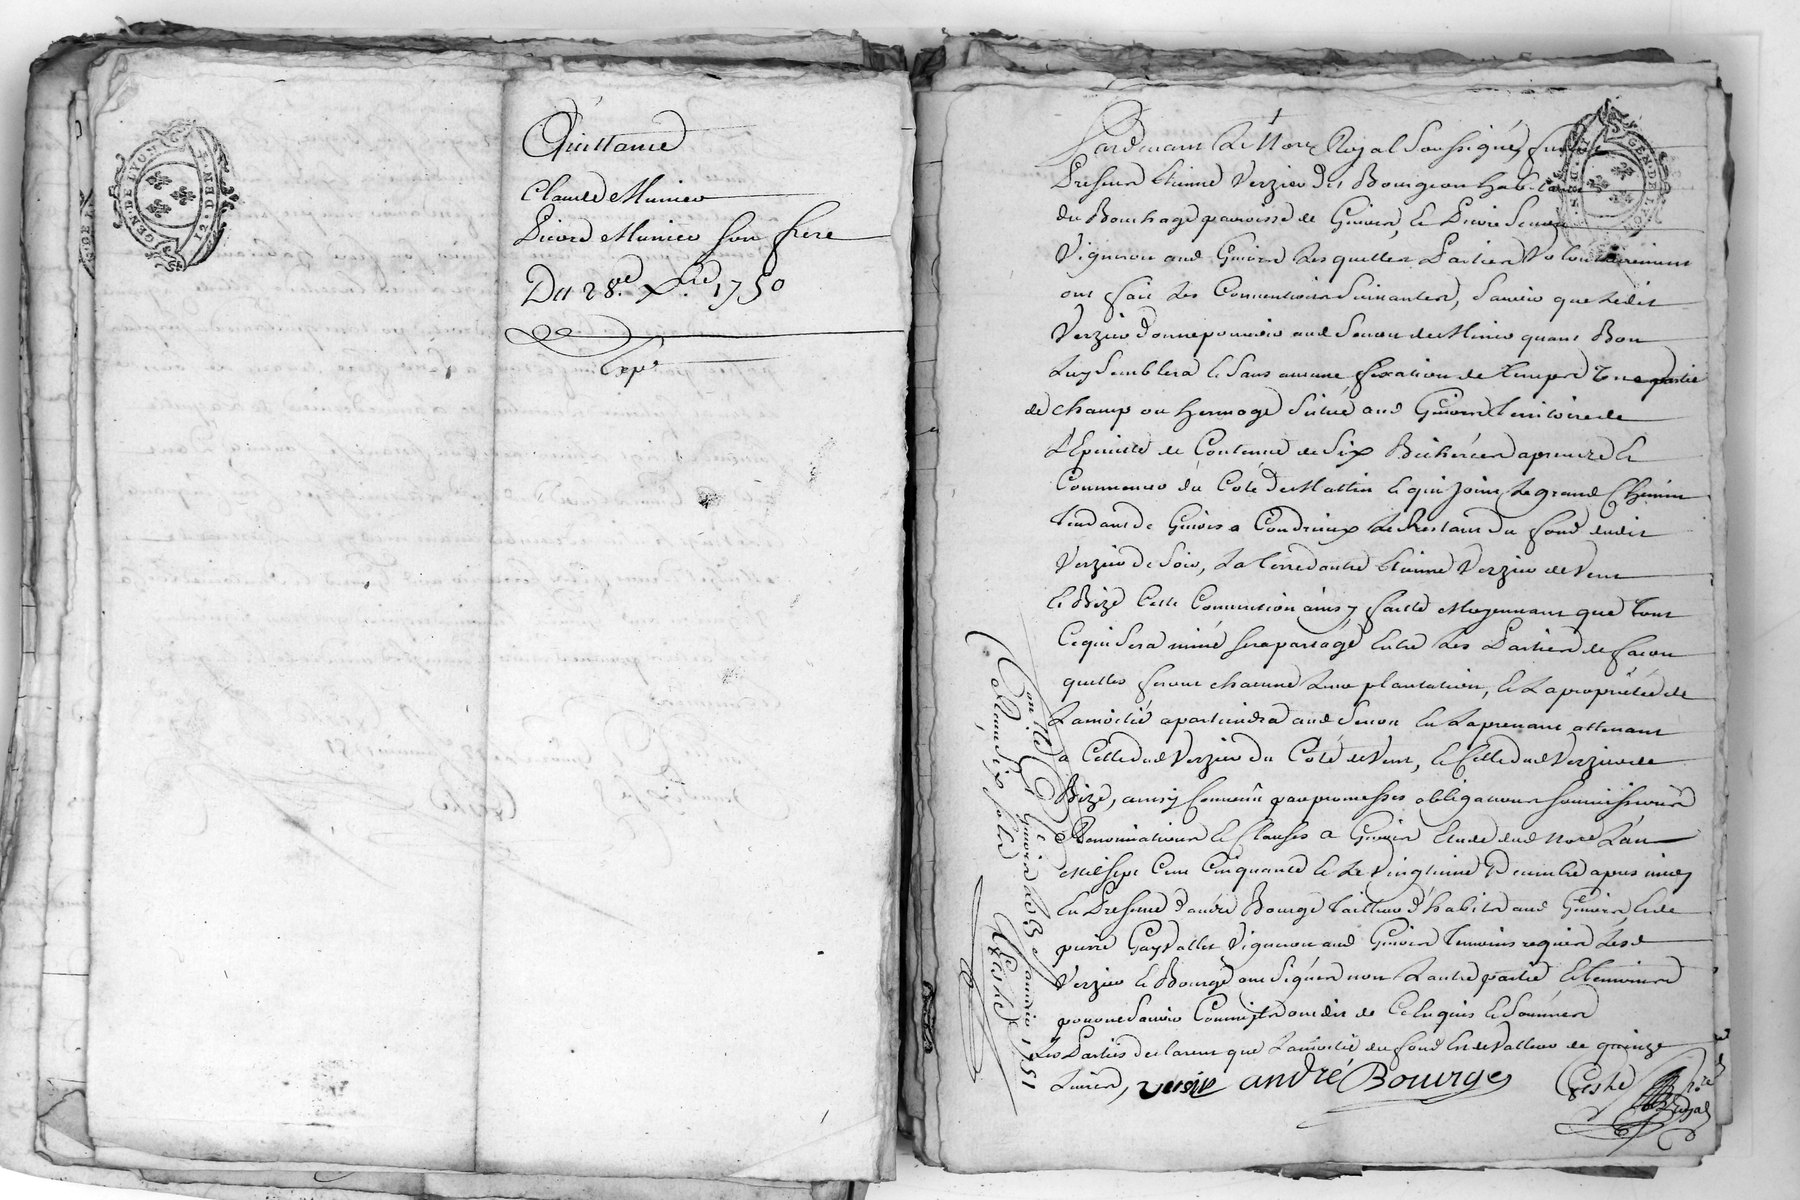 GEN. DE LYON
12. DEN.
Quittance
Claude Munier
Pierre Munier son frere
Du 28.e Xbre 1750
Expé
GEN. DE LYO
Pardevant Le Nore Royal Soussigné, furent
Presens Etienne Verzier dit Bourgeon habitant
du Bouchage paroisse de Givors, et Pierre
Vigneron aud Givors Lesquelles Parties Volontairement
ont fait Les Conventions Suivantes, Sçavoir que Ledit
Verzier donne pouvoir aud de Miner quant Bon
Luy Semblera et Sans aucune fixation de temps Une partie
de champ ou hermage Situé aud Givors territoire de
de Contenue de Six Bicherées aprendre et
Commencer du Coté de Mattin et qui Joint Le grand Chemin
tendant de Givors a Condrieux Le Restant du fond dudit
Verzier de Soir, La terre dautre Etienne Verzier de Vent
et Bize Cette Convention ainsy faitte Moyennant que tout
Ce qui Sera miné sera partagé Entre Les Parties de facon
quelles feront chacune Leur plantation, et La proprietée de
La moitié apartiendra aud En La prenant attenant
a Celle dud Verzier du Coté de Vent, et Celle dud Verzier de
Bize, ainsy Convenu par promesses obligations soumissions
Renonciations et Clauses a Givors Etude dud Nore L'an
Mil Sept Cent Cinquante et Le Vingtieme Decembre apres midy
En Presence d'andré Bourge tailleur d'habits aud Givors, Et de
pierre Vigneron aud Givors temoins requis Led
Verzier et Bourge ont Signés non Lautre partie Et temoins
pour ne Sçavoir Comm'ils ont dit de Ce Enquis et Sommés
Les Parties declarent que La moitié du fond Est de Valleur de quinze
Livres, verzie andré Bourge
Nore Royal
Con.lle a Givors le 3 Janvier 1751